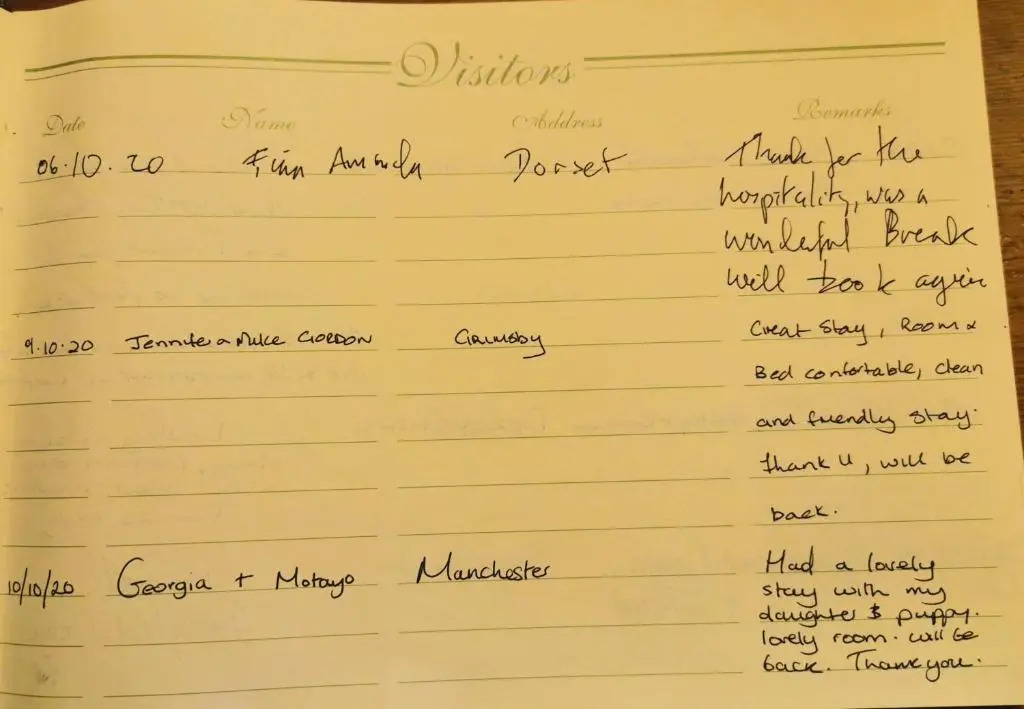 Visitors
Date Name Address Remarks
06.10.20 Amanda Dorset Thank for the
hospitality, was a
wonderful Break
will book again
9.10.20 Jennifer & Mike GORDON Grimsby Great Stay, Room &
Bed confortable, clean
and friendly stay.
thank U, will be
back.
10/10/20 Georgia + Motayo Manchester Had a lovely
stay with my
daughter & puppy.
lovely room. will be
back. Thank you.